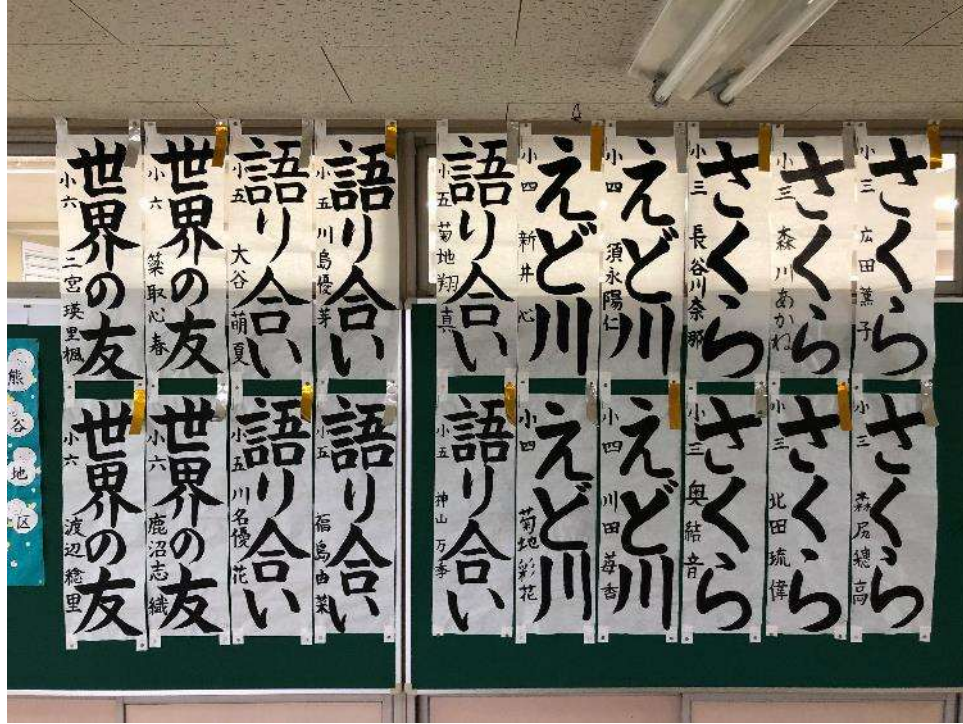 さくら
小三 広田薫子
さくら
小三 森川あかね
さくら
小三 長谷川奈那
えど川
小四 須永陽仁
えど川
小四 新井心
語り合い
小五 菊地翔真
語り合い
小五 川島優芽
語り合い
小五 大谷萌夏
世界の友
小六 築取心春
世界の友
小六 二宮瑛里楓
さくら
小三 森尻穂高
さくら
小三 北田琉偉
さくら
小三 奥結音
えど川
小四 川田苺香
えど川
小四 菊地彩花
語り合い
小五 神山万季
語り合い
小五 福島由菜
語り合い
小五 川名優花
世界の友
小六 鹿沼志織
世界の友
小六 渡辺稔里
熊谷地区